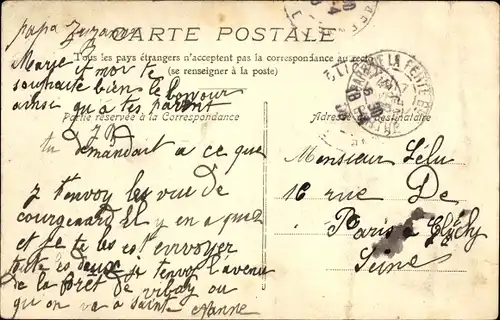 papa Suzanne
CARTE POSTALE
Tous les pays étrangers n'acceptent pas la correspondance au recto
(se renseigner à la poste)
Marye et moi te
souhaite bien le bonjour
ainsi qu'a tes parent
Partie réservée à la Correspondance
Adresse du Destinataire
tu demandait a ce que
j t'envoy les vue de
courgenard El y en a que 2
et je te les est envoyer
toute les deux je t'envoi l'avenu
de la foret de vibay ou
qu on va a sainte Anne
Monsieur Lélu
16 rue De
Paris a Clichy
Seine